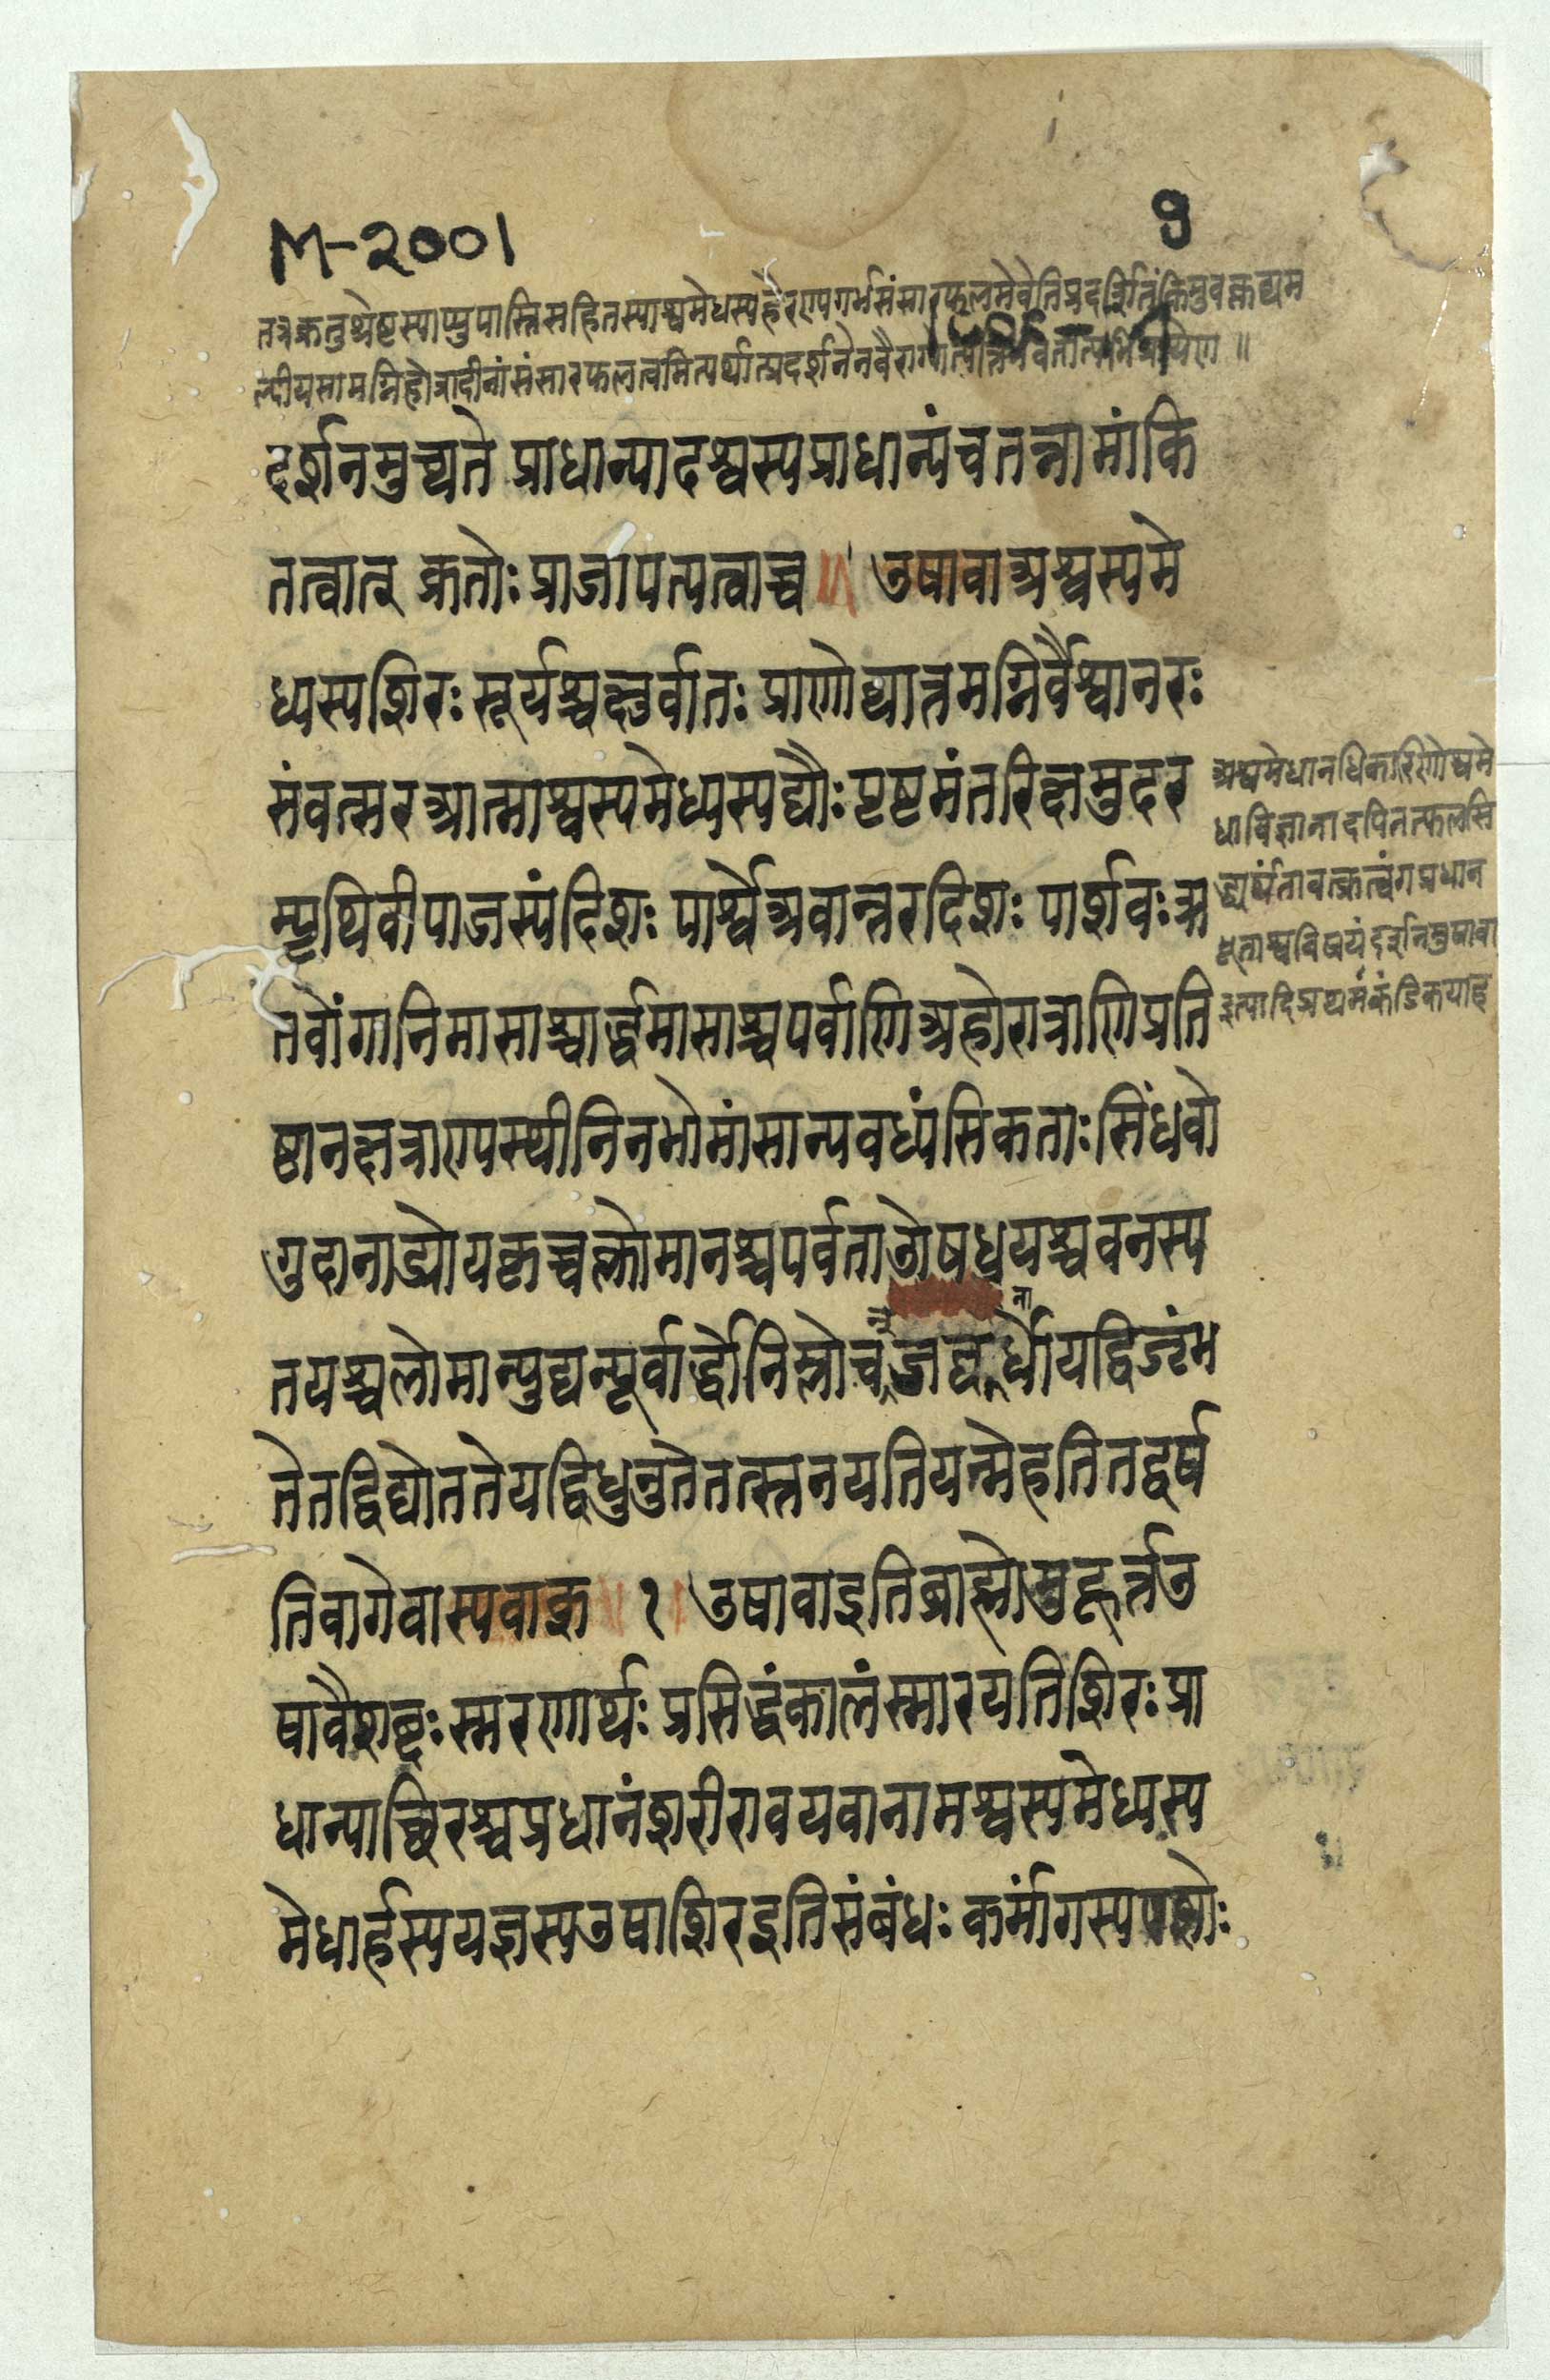 M-२००१
९
तत्रक्रतुश्रेष्टस्याप्युपास्तिसहितस्याश्वमेधस्यहैरण्यगर्भसंसारफलमेवेतिप्रदर्शिते किमुवक्तव्यम
ल्पीयसामग्निहोत्रादीनांसंसारफलत्वमित्यर्थात्प्रदर्शनेनवैराग्यो ॥
दर्शनमुच्यते प्राधान्यादश्वस्यप्राधान्यंचतन्नामांकि
तत्वात् क्रतोः प्राजापत्यत्वाच्च ॥ उषावाअश्वस्यमे
ध्यस्यशिरः सूर्यश्चक्षुर्वातः प्राणोव्यात्तमग्निर्वैश्वानरः
संवत्सरआत्माश्वस्यमेध्यस्यद्यौः पृष्टमंतरिक्षमुदर
म्पृथिवीपाजस्यंदिशः पार्श्वेअवान्तरदिशः पार्शवः ऋ
तवोंगानिमासाश्चार्द्धमासाश्चपर्वाणिअहोरात्राणिप्रति
ष्ठानक्षत्राण्यस्थीनिनभोमांसान्यूवध्यंसिकताः सिंधवो
गुदानाड्योयकृच्चक्लोमानश्चपर्वताओषधयश्चवनस्प
तयश्चलोमान्युद्यन्पूर्वार्द्धोनिम्लोचञ्जघनार्धोयद्विजृंभ
तेतद्विद्योततेयद्विधुनुतेतत्स्तनयतियन्मेहतितद्वर्ष
तिवागेवास्यवाक् ॥ १ ॥ उषावाइतिब्राह्मोमुहूर्त्तउ
षावैशब्दः स्मरणार्थः प्रसिद्धंकालंस्मारयतिशिरः प्रा
धान्याच्छिरश्चप्रधानंशरीरावयवानामश्वस्यमेध्यस्य
मेधार्हस्ययज्ञस्यउषाशिरइतिसंबंधः कर्मांगस्यपशोः
अश्वमेधानधिकारिणोश्वमे
धविज्ञानादपितत्फलसि
द्ध्यर्थंतावत्क्रत्वंगप्रधान
भूताश्वविषयंदर्शनमुषावा
इत्यादिप्रथमकंडिकयाह